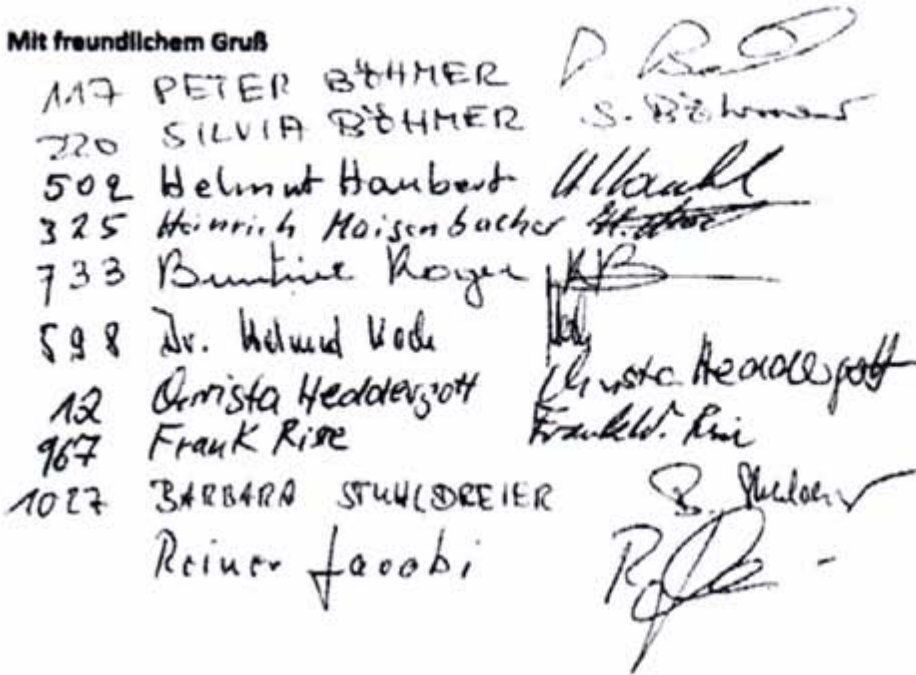 Mit freundlichem Gruß
117 PETER BÖHMER
220 SILVIA BÖHMER S. Böhmer
502 Helmut Haubert
325 Heinrich Maisenbacher
733 
598 Dr. Helmut Koch
12 Christa Heddergott Christa Heddergott
967 Frank Rise Frank W. Rise
1027 BARBARA STUHLDREIER B.
Reiner Jacobi